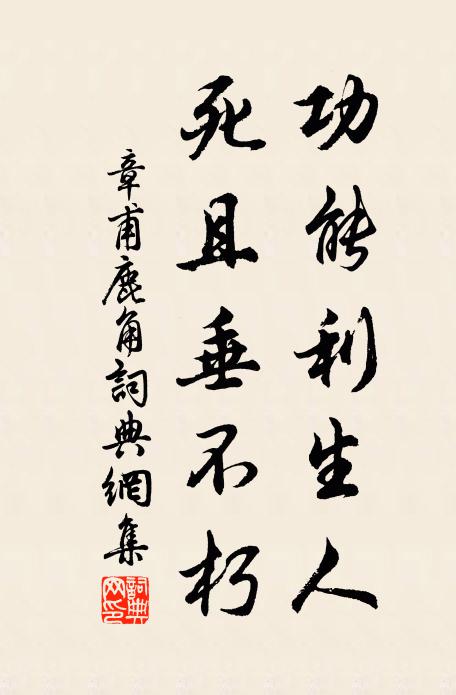 功能利生人
死且垂不朽
章甫鹿角詞典網集
詞典网印